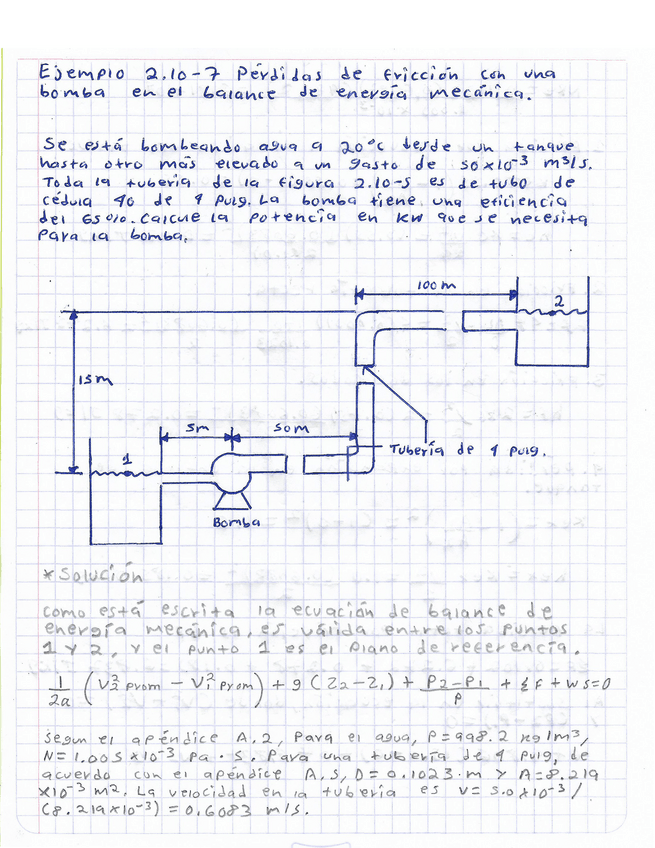 Ejemplo 2.10-7 Pérdidas de fricción con una
bomba en el balance de energía mecánica.
Se está bombeando agua a 20°c desde un tanque
hasta otro más elevado a un gasto de 50x10⁻³ m³/s.
Toda la tubería de la figura 2.10-5 es de tubo de
cédula 40 de 4 pulg. La bomba tiene una eficiencia
del 65%. Calcule la potencia en kW que se necesita
para la bomba.
100 m
2
15 m
5m
50 m
1
Tubería de 4 pulg.
Bomba
*Solución
como está escrita la ecuación de balance de
energía mecánica, es válida entre los puntos
1 y 2, y el punto 1 es el plano de referencia.
1/2a (V²₂ prom - V²₁ prom) + g (Z₂ - Z₁) + P₂-P₁/ρ + ΣF + Ws=0
Según el apéndice A.2, Para el agua, ρ=998.2 kg/m³,
N=1.005 x10⁻³ pa·s. Para una tubería de 4 pulg, de
acuerdo con el apéndice A.5, D=0.1023·m y A=8.219
x10⁻³ m². La velocidad en la tubería es v= 5.0x10⁻³/
(8.219x10⁻³) = 0.6083 m/s.